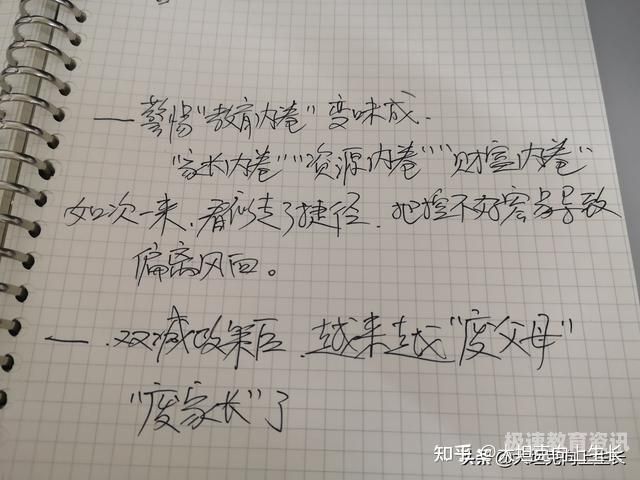 一警惕“教育内卷”变味成.
“家长内卷”“资源内卷”“财富内卷”
如次一来.看似走了捷径.把控不好容易导致
偏离风向。
一.双减政策后.越来越“废父母”
“废家长”了
极速教育资讯
知乎